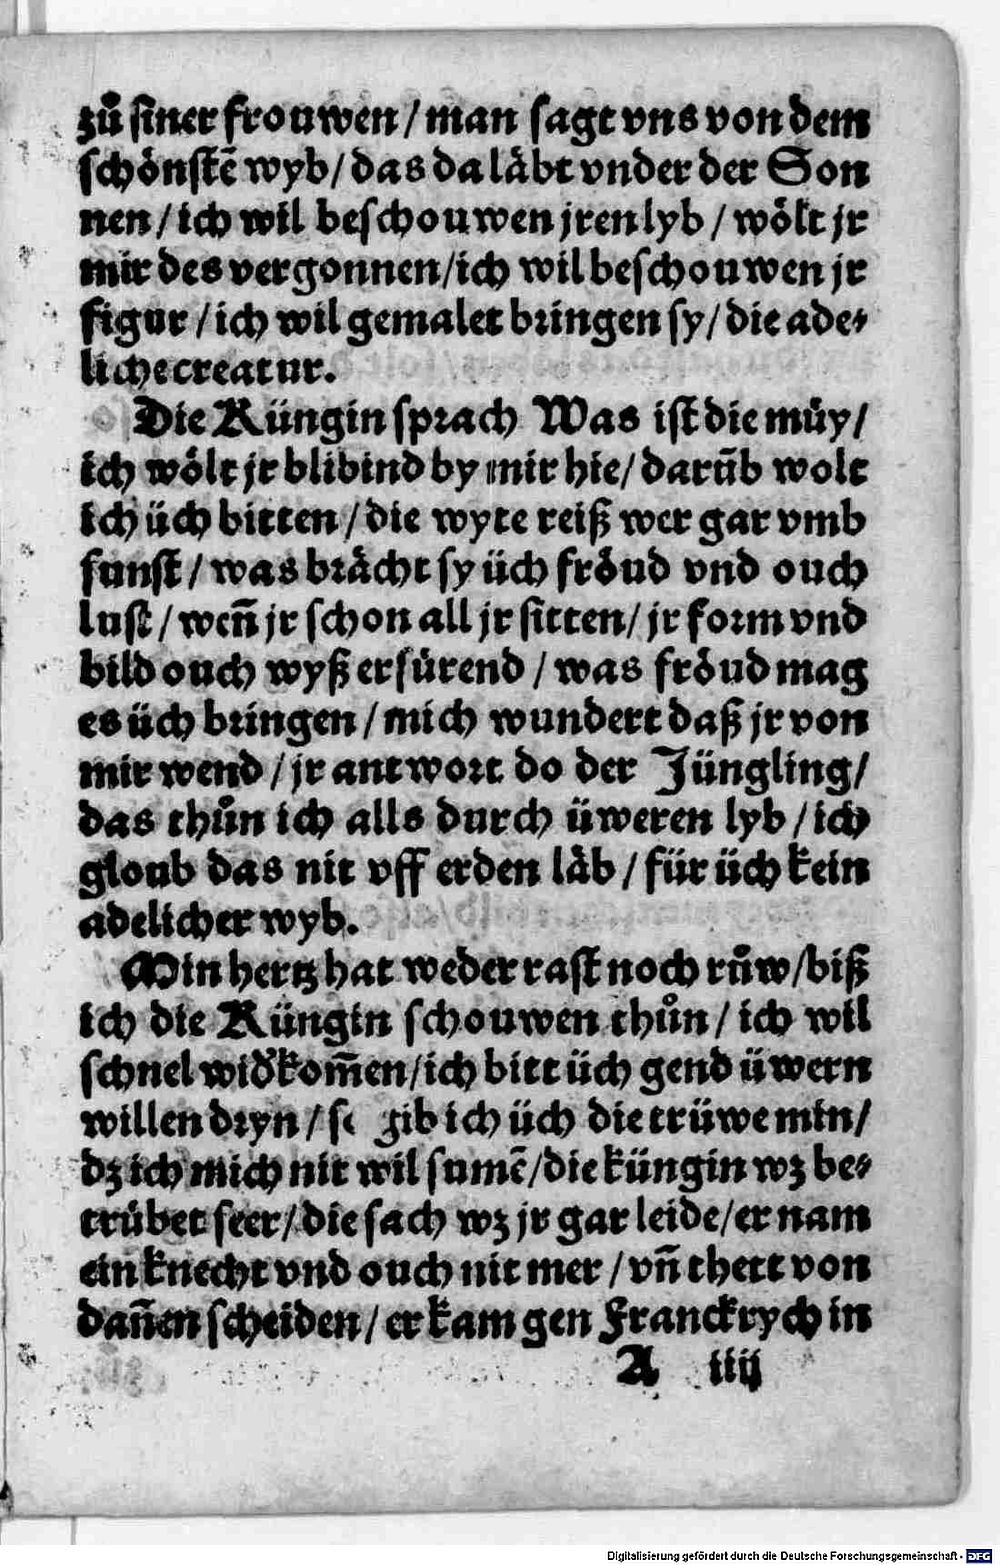 zuͦ siner frouwen / man sagt vns von dem
schönstẽ wyb / das da läbt vnder der Son
nen / ich wil beschouwen jren lyb / wölt jr
mir des vergonnen / ich wil beschouwen jr
figur / ich wil gemalet bringen sy / die ade⸗
liche creatur.
Die Küngin sprach Was ist die müy /
ich wölt jr blibind by mir hie / darũb wolt
ich üch bitten / die wyte reiß wer gar vmb
sunst / was brächt sy üch fröud vnd ouch
lust / weñ jr schon all jr sitten / jr form vnd
bild ouch wyß erfürend / was fröud mag
es üch bringen / mich wundert daß jr von
mir wend / jr antwort do der Jüngling /
das thuͦn ich alls durch üweren lyb / ich
gloub das nit vff erden läb / für üch kein
adelicher wyb.
Min hertz hat weder rast noch ruͦw / biß
ich die Küngin schouwen thuͦn / ich wil
schnel widkom̃en / ich bitt üch gend üwern
willen dryn / gib ich üch die trüwe min /
dz ich mich nit wil sumẽ / die küngin wz be⸗
trübet seer / die sach wz jr gar leide / er nam
ein knecht vnd ouch nit mer / vñ thett von
dañen scheiden / er kam gen Franckrych in
A iiij
Digitalisierung gefördert durch die Deutsche Forschungsgemeinschaft - DFG